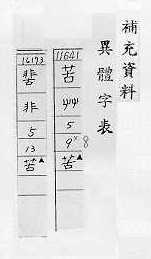 補充資料
異體字表
11641
苦
艸
5
9
8
苦▲
16173
非
5
13
苦▲